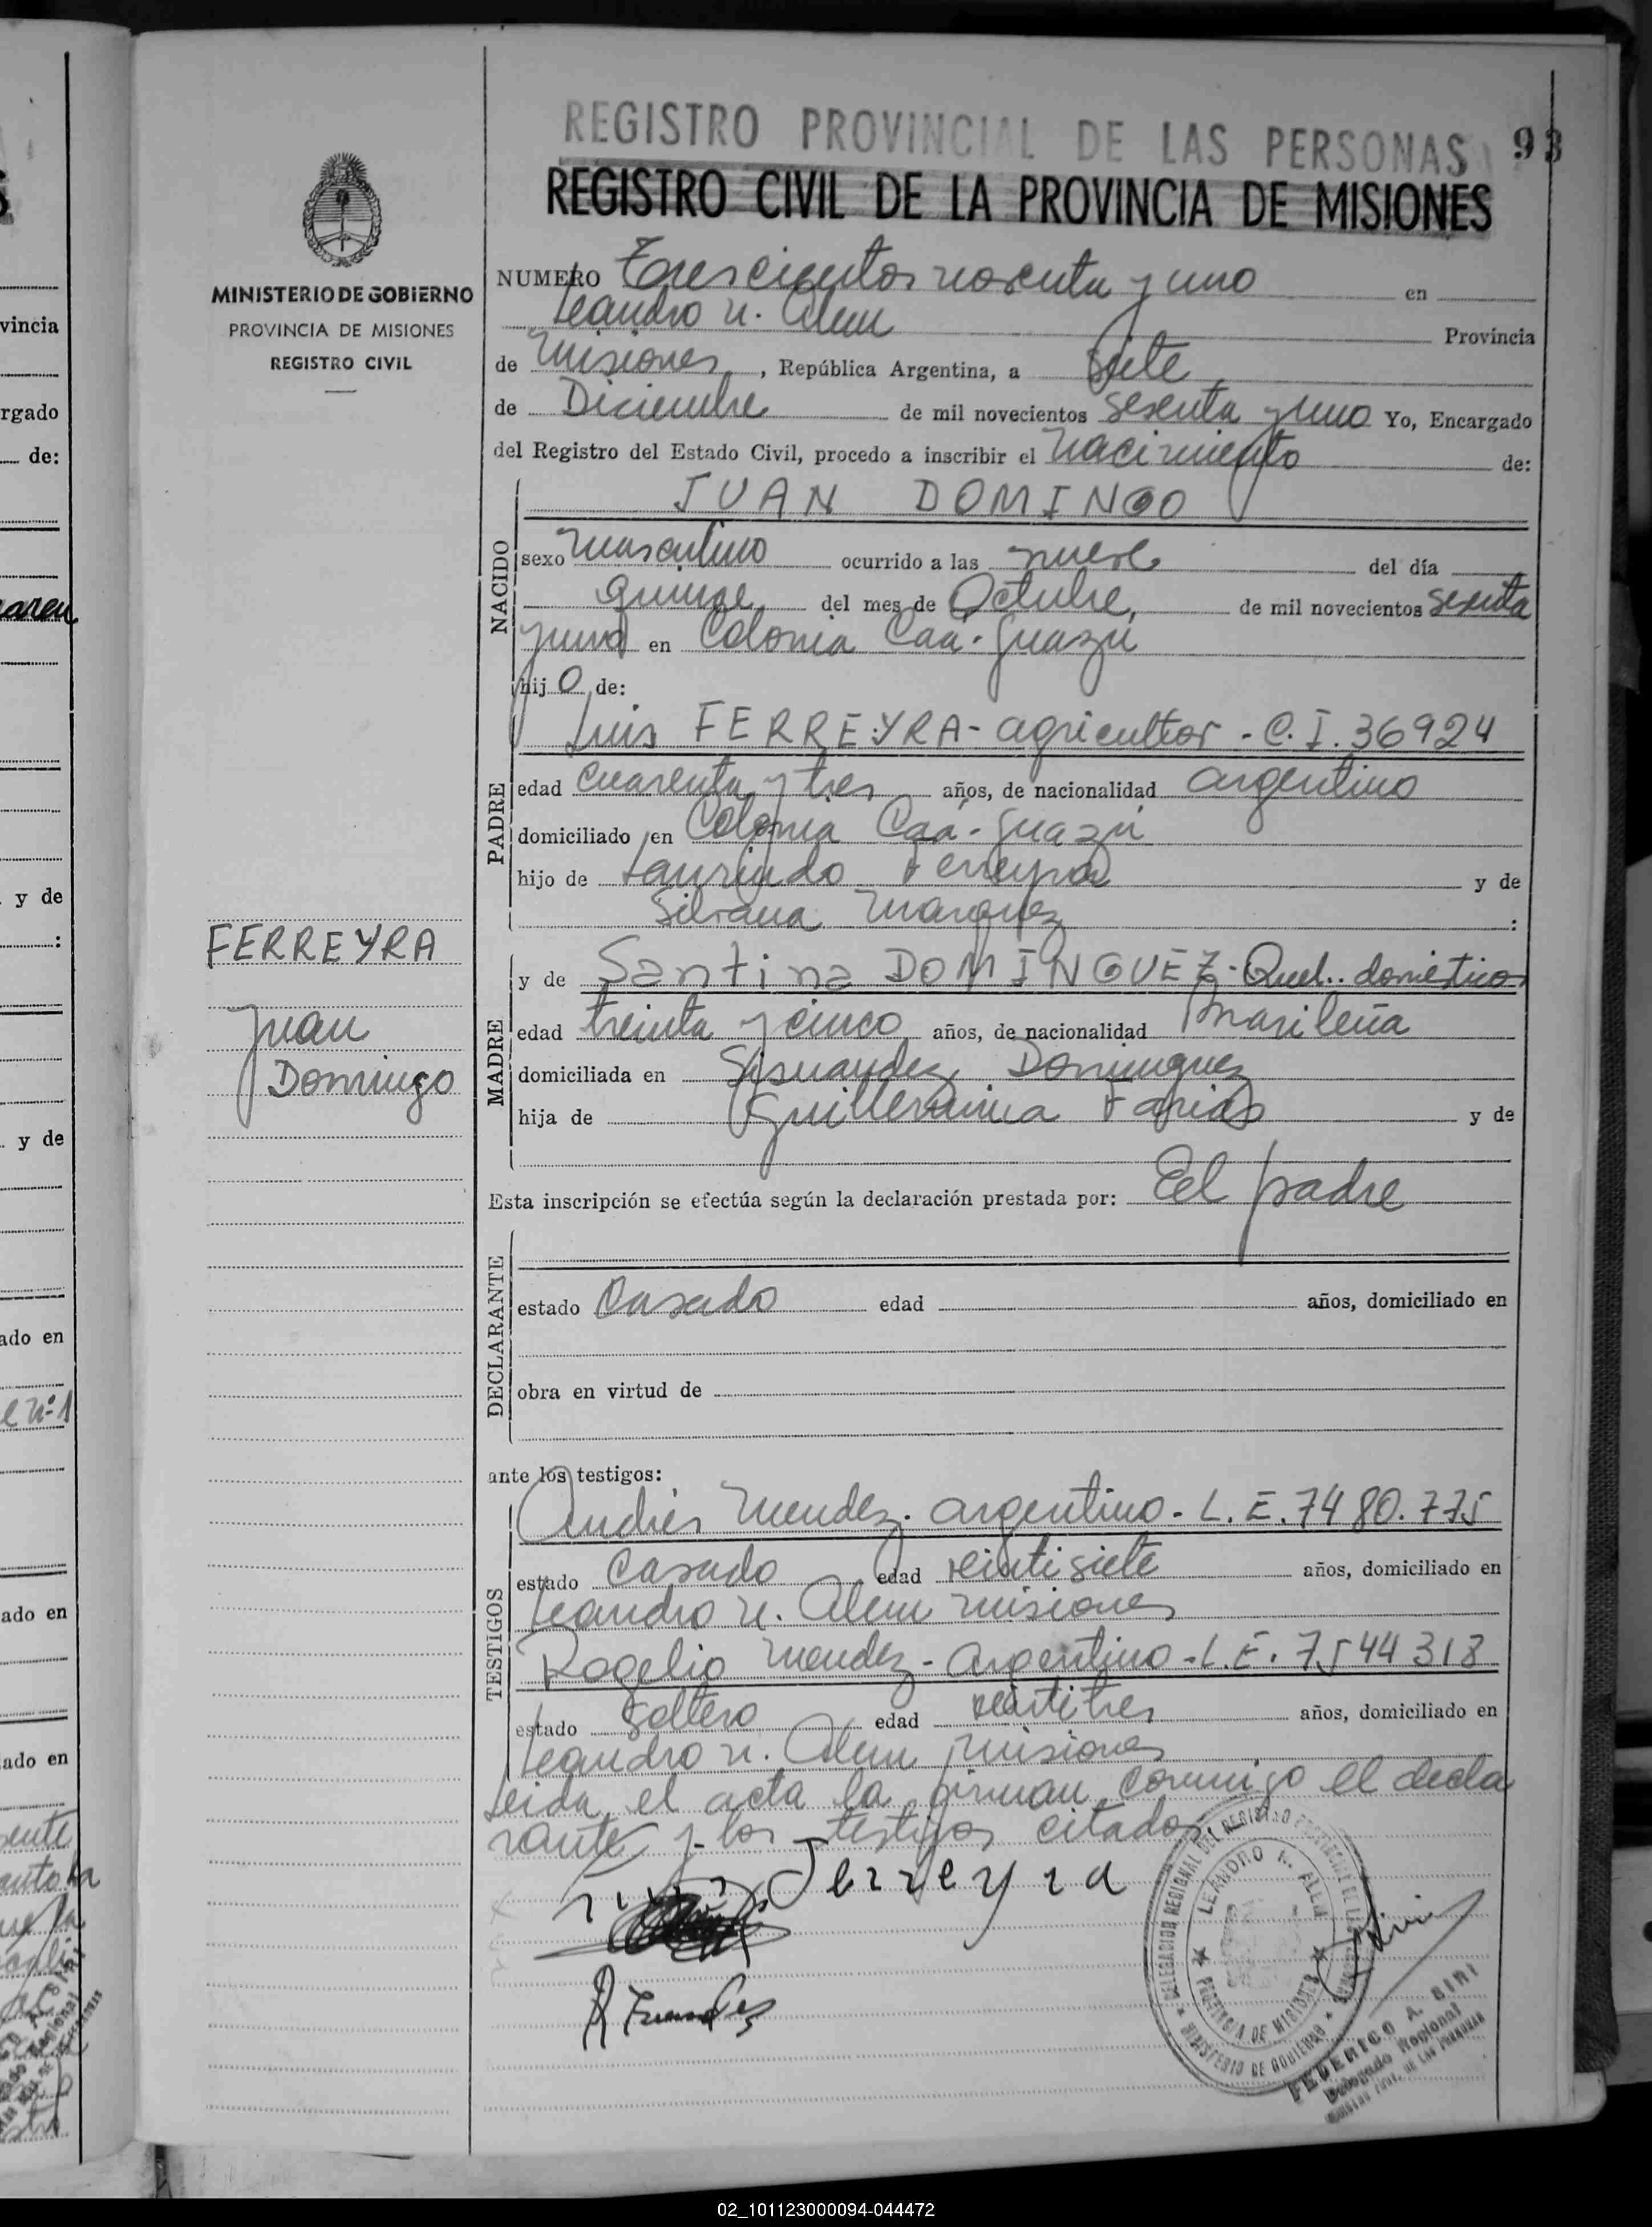 REGISTRO PROVINCIAL DE LAS PERSONAS 93
REGISTRO CIVIL DE LA PROVINCIA DE MISIONES
MINISTERIO DE GOBIERNO
PROVINCIA DE MISIONES
REGISTRO CIVIL
FERREYRA
Juan
Domingo
NUMERO Trescientos noventa y uno en
Leandro N. Alem Provincia
de Misiones, República Argentina, a siete
de Diciembre de mil novecientos sesenta y uno Yo, Encargado
del Registro del Estado Civil, procedo a inscribir el nacimiento de:
NACIDO
JUAN DOMINGO
sexo masculino ocurrido a las nueve del día
quince del mes de Octubre, de mil novecientos sesenta
y uno en Colonia Caá-Guazú
hijo de:
PADRE
Luis FERREYRA - agricultor - C.I. 36924
edad cuarenta y tres años, de nacionalidad argentino
domiciliado en Colonia Caá-Guazú
hijo de Laurindo Ferreyra y de
Silvana Marquez :
MADRE
y de Santina DOMINGUEZ - Queh. domésticos
edad treinta y cinco años, de nacionalidad brasileña
domiciliada en Dominguez
hija de Guillermina Farias y de
Esta inscripción se efectúa según la declaración prestada por: El padre
DECLARANTE
estado Casado edad años, domiciliado en
obra en virtud de
ante los testigos:
TESTIGOS
Andrés Mendez. argentino - L.E. 7480.775
estado Casado edad veintisiete años, domiciliado en
Leandro N. Alem Misiones
Rogelio Mendez - Argentino - L.E. 7544318
estado soltero edad veintitres años, domiciliado en
Leandro N. Alem Misiones
Leida el acta la firman conmigo el decla
rante y los testigos citados
Ferreyra
DELEGACION REGIONAL DEL REGISTRO PROVINCIAL DE LAS PERSONAS
LEANDRO N. ALEM
PROVINCIA DE MISIONES
MINISTERIO DE GOBIERNO
FEDERICO A. BINI
Delegado Regional
02_101123000094-044472